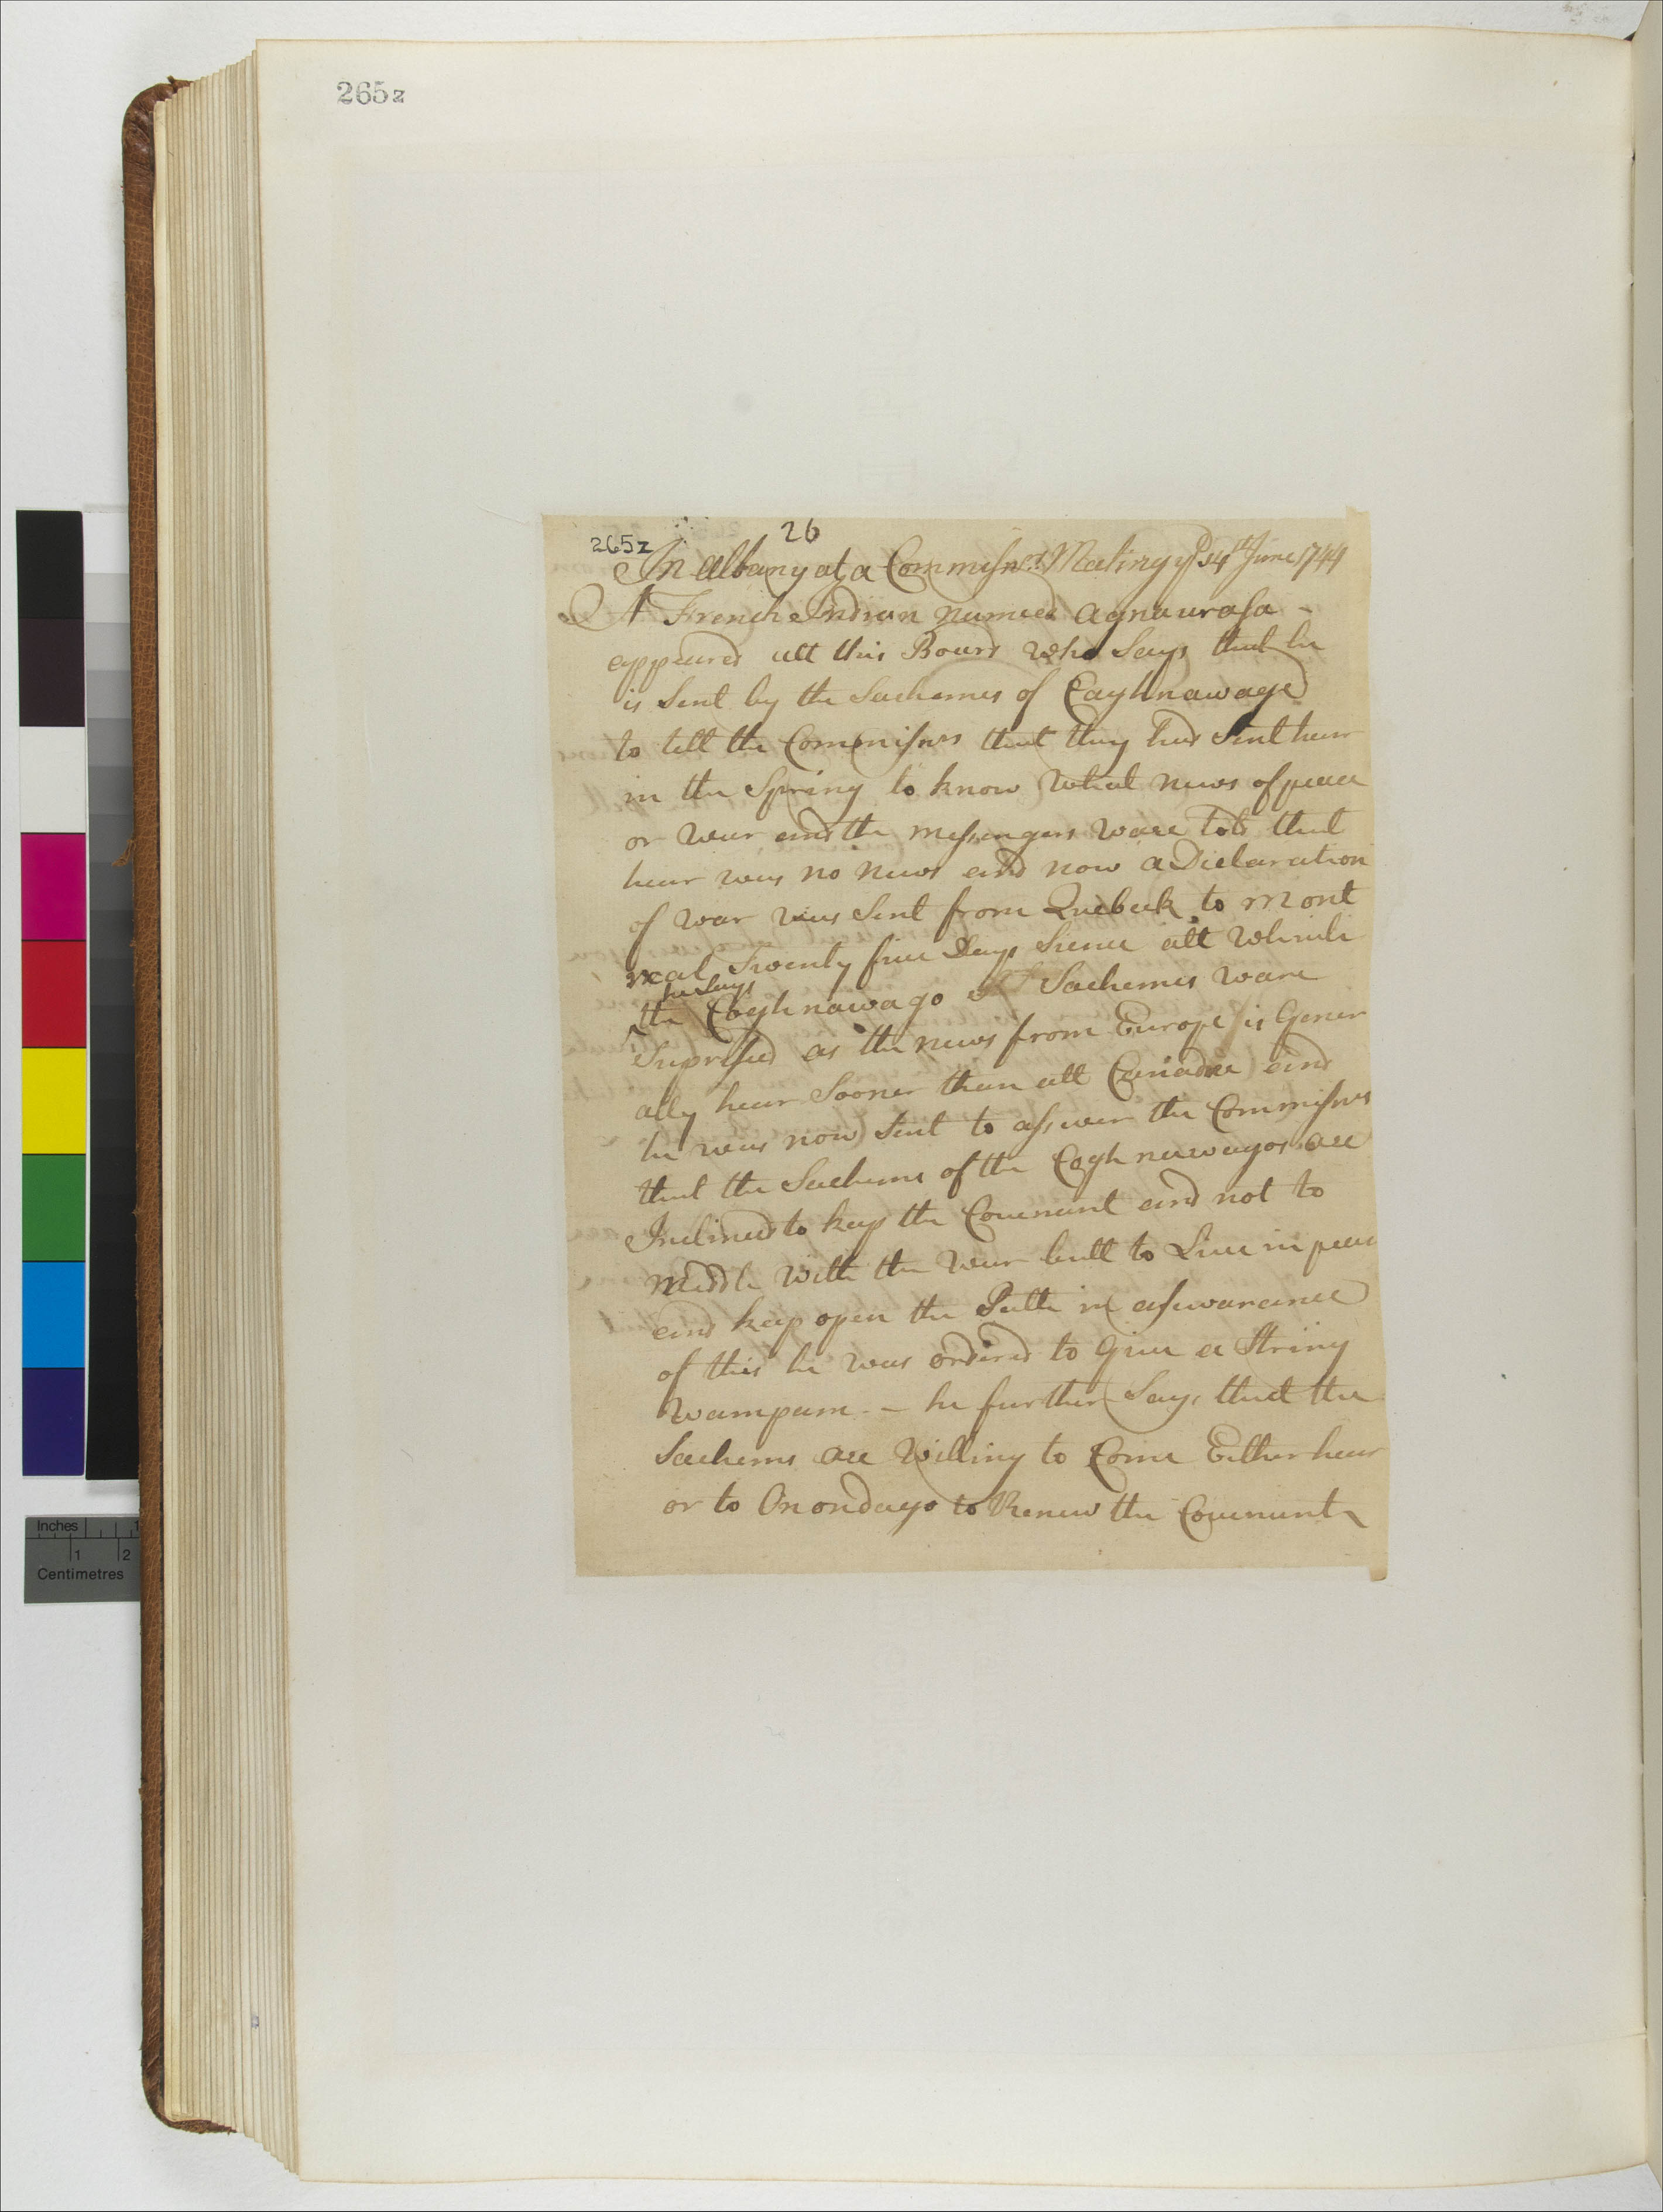 265z
265z
26
In Albany at a Commissnrs Meeting ye 14th June 1744
A French Indian named Agnaurasa -
appeared att this Board who Says that he
is Sent by the Sachemes of Caghnawage
to tell the Commissnrs that they had Sent hear
in the Spring to know What News of peace
or war and the messengers ware told that
hear was no news and now a Dielaration
of war was Sent from Quebeck to Mont
real Twenty five Days Sience att Which
he Says
the Caghnawago Sachemes ware
Suprised as the news from Europe is Gener
ally hear Sooner than att Canada and
he was now Sent to assuer the Commissnrs
that the Sachems of the Caghnawagos are
Inclined to keep the Covenant and not to
Meddle With the war butt to Live in peace
and keep open the Path in assurance
of this he was ordered to Give a String
Wampam - he further Says that the
Sachems are Willing to Come Either hear
or to Onondago to Renew the Covenant
Inches 1
1 2
Centimetres